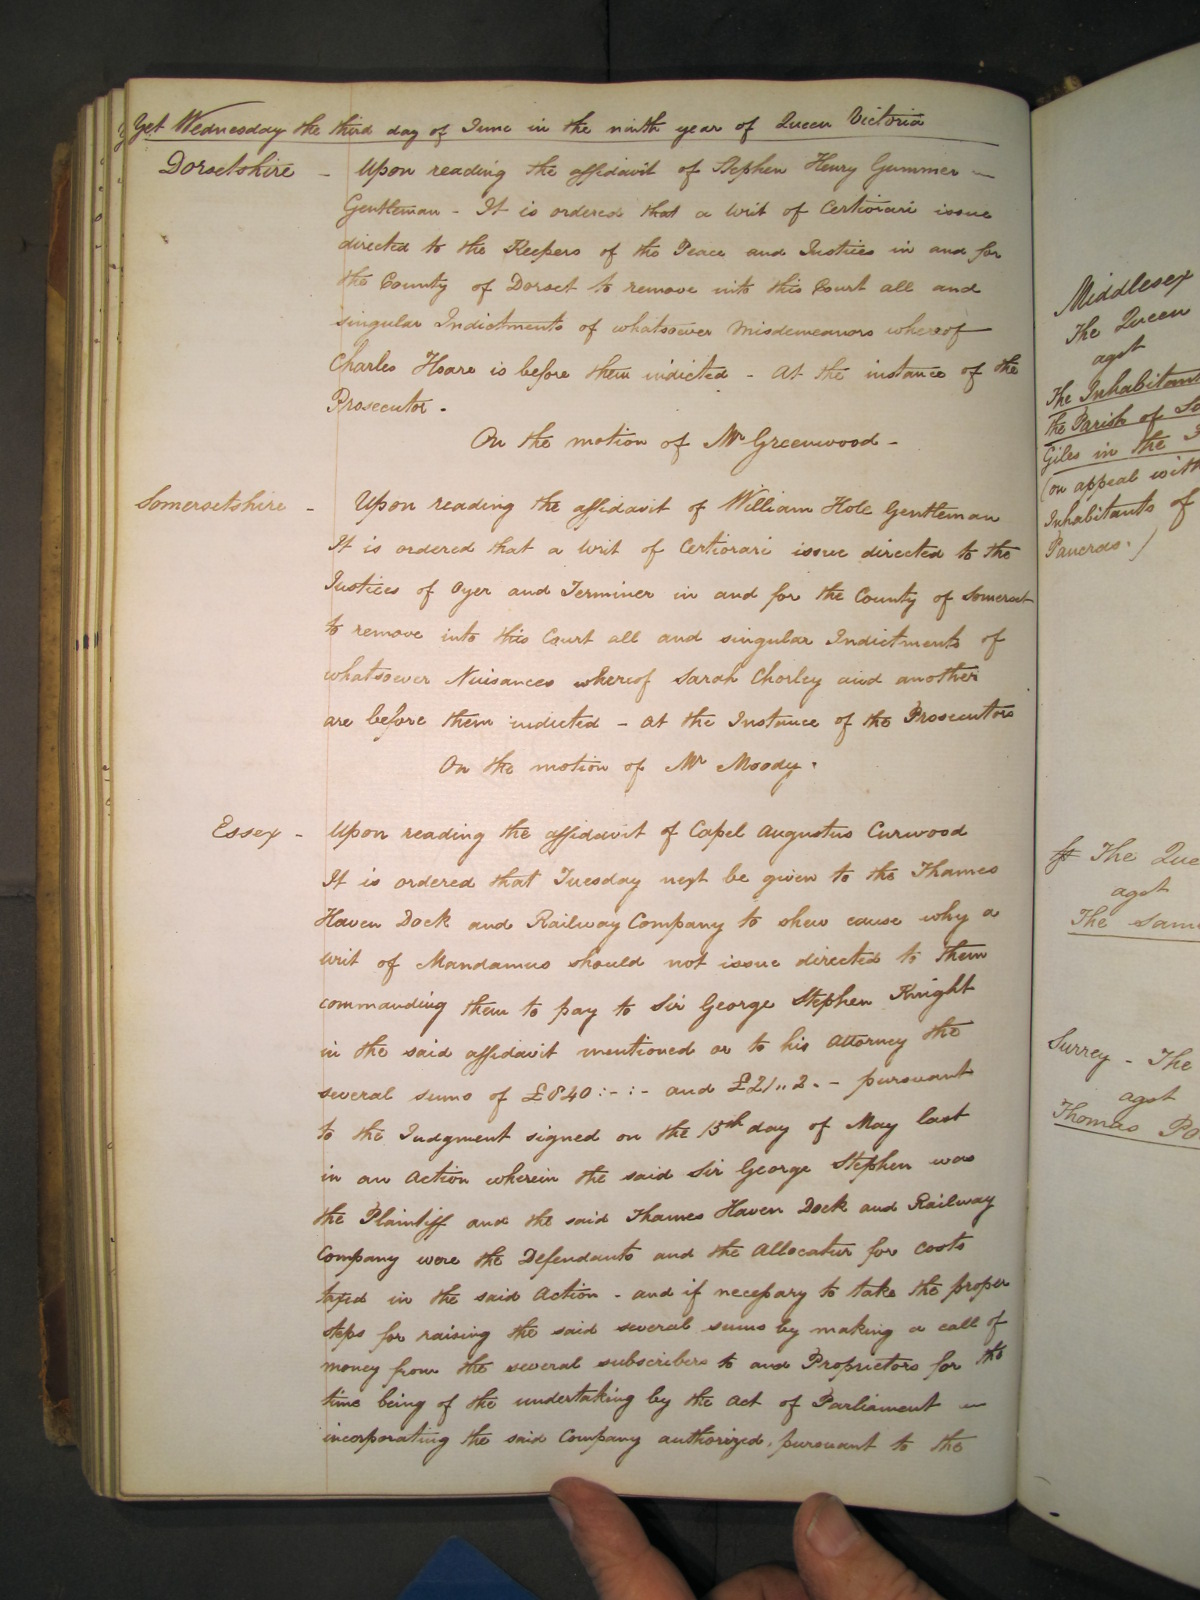 Yet Wednesday the third day of June in the ninth year of Queen Victoria
Dorsetshire - Upon reading the affidavit of Stephen Henry Gummer -
Gentleman - It is ordered that a Writ of Certiorari issue
directed to the Keepers of the Peace and Justices in and for
the County of Dorset to remove into this Court all and
singular Indictments of whatsoever Misdemeanors whereof
Charles Hoare is before them indicted - At the instance of the
Prosecutor.
On the motion of Mr Greenwood -
Somersetshire - Upon reading the affidavit of William Hole Gentleman
It is ordered that a Writ of Certiorari issue directed to the
Justices of Oyer and Terminer in and for the County of Somerset
to remove into this Court all and singular Indictments of
whatsoever Nuisances whereof Sarah Chorley and another
are before them indicted - At the Instance of the Prosecutors
On the motion of Mr Moody.
Essex - Upon reading the affidavit of Capel Augustus Curwood
It is ordered that Tuesday next be given to the Thames
Haven Dock and Railway Company to shew cause why a
Writ of Mandamus should not issue directed to them
commanding them to pay to Sir George Stephen Knight
in the said affidavit mentioned or to his Attorney the
several sums of £840:-:- and £21,,2.- pursuant
to the Judgment signed on the 15th day of May last
in an Action wherein the said Sir George Stephen was
the Plaintiff and the said Thames Haven Dock and Railway
Company were the Defendants and the Allocatur for costs
taxed in the said Action - and if necessary to take the proper
steps for raising the said several sums by making a call of
money from the several subscribers to and Proprietors for the
time being of the undertaking by the Act of Parliament -
incorporating the said Company authorized, pursuant to the
Middlesex
The Queen
agst
The Inhabitants
the Parish of
Giles in the
(on appeal with
Inhabitants of
Pancras.)
The Que
agst
The Same
Surrey - The
agst
Thomas Po